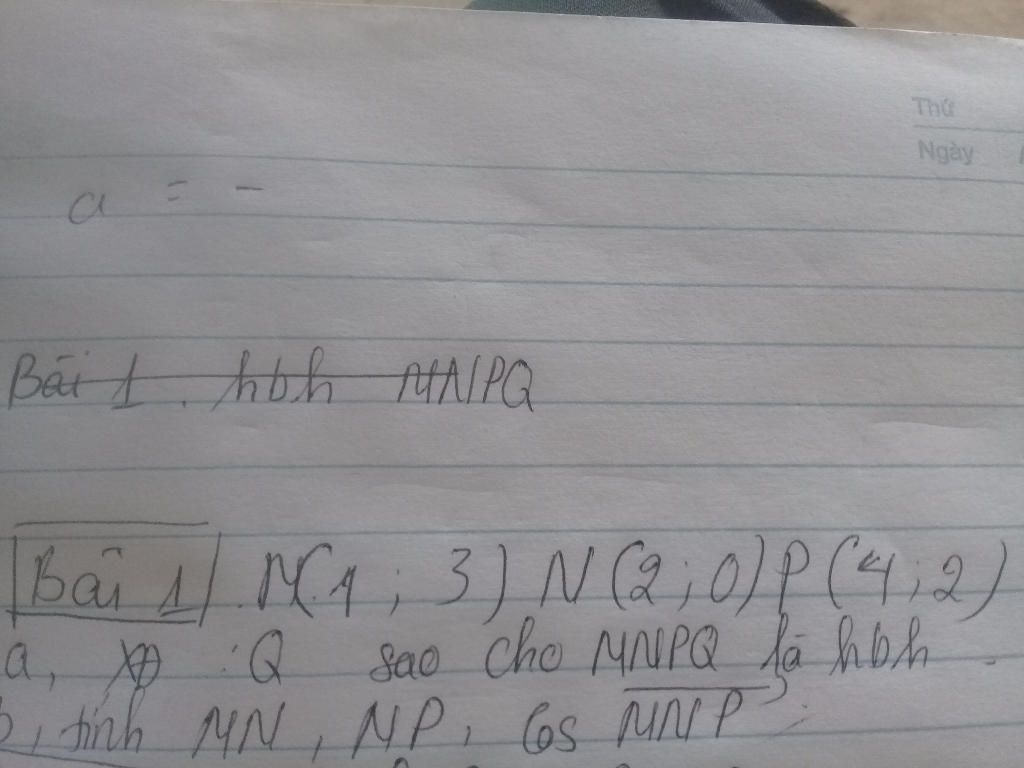 Thứ
Ngày
a = -
Bài 1. hbh MNPQ
Bài 1. M(1; 3) N(2; 0) P(4; 2)
a, : Q sao cho MNPQ là hbh.
b, tính MN, NP, Cos MNP